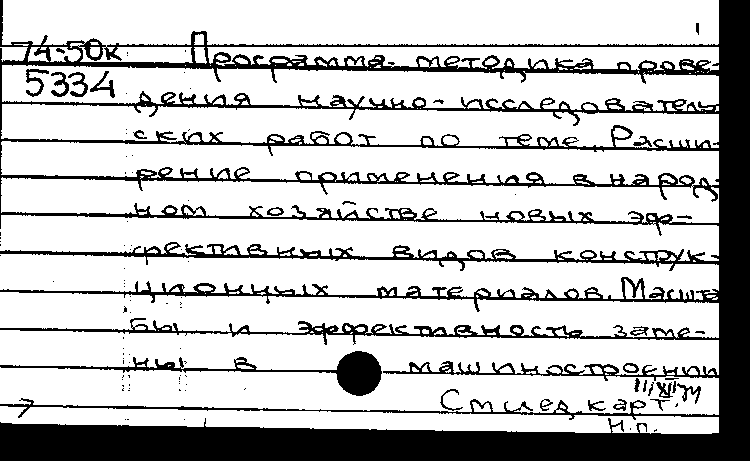 74-50к Программа-методика прове-
5334 дения научно-исследователь
ских работ по теме „Расши-
рение применения в народ-
ном хозяйстве новых эф-
фективных видов конструк-
ционных материалов. Масшта
бы и эффективность заме-
ны в машиностроении
См след. карт.
н.п.